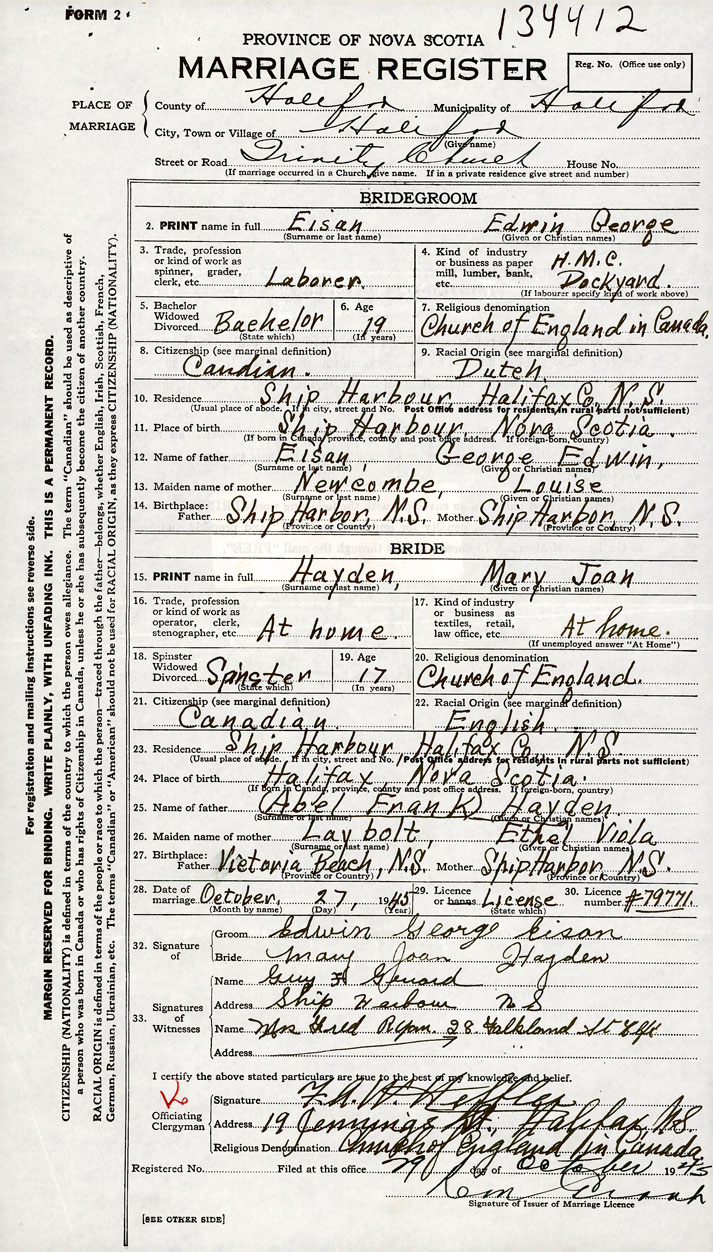 FORM 2
134412
PROVINCE OF NOVA SCOTIA
MARRIAGE REGISTER
Reg. No. (Office use only)
PLACE OF MARRIAGE
County of Halifax Municipality of Halifax
City, Town or Village of Halifax
(Give name)
Street or Road Trinity Church House No.
(If marriage occurred in a Church, give name. If in a private residence give street and number)
BRIDEGROOM
2. PRINT name in full Eisan Edwin George
(Surname or last name) (Given or Christian names)
3. Trade, profession or kind of work as spinner, grader, clerk, etc. Laborer.
4. Kind of industry or business as paper mill, lumber, bank, etc. H.M.C. Dockyard.
(If labourer specify kind of work above)
5. Bachelor Widowed Divorced Bachelor
(State which)
6. Age 19
(In years)
7. Religious denomination
Church of England in Canada.
8. Citizenship (see marginal definition)
Candian.
9. Racial Origin (see marginal definition)
Dutch.
10. Residence Ship Harbour, Halifax Co, N.S.
(Usual place of abode. If in city, street and No. Post Office address for residents in rural parts not sufficient)
11. Place of birth Ship Harbour, Nova Scotia.
(If born in Canada, province, county and post office address. If foreign-born, country)
12. Name of father Eisan, George Edwin,
(Surname or last name) (Given or Christian names)
13. Maiden name of mother Newcombe, Louise
(Surname or last name) (Given or Christian names)
14. Birthplace: Father Ship Harbor, N.S. Mother Ship Harbor, N.S.
(Province or Country) (Province or Country)
BRIDE
15. PRINT name in full Hayden, Mary Joan
(Surname or last name) (Given or Christian names)
16. Trade, profession or kind of work as operator, clerk, stenographer, etc. At home.
17. Kind of industry or business as textiles, retail, law office, etc. At home.
(If unemployed answer "At Home")
18. Spinster Widowed Divorced Spinster
(State which)
19. Age 17
(In years)
20. Religious denomination
Church of England.
21. Citizenship (see marginal definition)
Canadian
22. Racial Origin (see marginal definition)
English.
23. Residence Ship Harbour Halifax Co, N.S.
(Usual place of abode. If in city, street and No. Post Office address for residents in rural parts not sufficient)
24. Place of birth Halifax Nova Scotia.
(If born in Canada, province, county and post office address. If foreign-born, country)
25. Name of father (Abel Frank) Hayden
(Surname or last name) (Given or Christian names)
26. Maiden name of mother Laybolt, Ethel Viola
(Surname or last name) (Given or Christian names)
27. Birthplace: Father Victoria Beach, N.S. Mother Ship Harbor, N.S.
(Province or Country) (Province or Country)
28. Date of marriage October, 27, 1945
(Month by name) (Day) (Year)
29. Licence or banns License
(State which)
30. Licence number #79771.
32. Signature of
Groom Edwin George Eisan
Bride Mary Joan Hayden
33. Signatures of Witnesses
Name Guy
Address Ship Harbour N S
Name Mrs Fred Ryan. 28 Falkland St
Address
I certify the above stated particulars are true to the best of my knowledge and belief.
Officiating Clergyman
Signature
Address 19 Jennings St., Halifax, N.S.
Religious Denomination Church of England in Canada
Registered No. Filed at this office 29 day of October 1945
Signature of Issuer of Marriage Licence
[SEE OTHER SIDE]
For registration and mailing instructions see reverse side.
MARGIN RESERVED FOR BINDING. WRITE PLAINLY, WITH UNFADING INK. THIS IS A PERMANENT RECORD.
CITIZENSHIP (NATIONALITY) is defined in terms of the country to which the person owes allegiance. The term "Canadian" should be used as descriptive of
a person who was born in Canada or who has rights of Citizenship in Canada, unless he or she has subsequently become the citizen of another country.
RACIAL ORIGIN is defined in terms of the people or race to which the person—traced through the father—belongs, whether English, Irish, Scottish, French,
German, Russian, Ukrainian, etc. The terms "Canadian" or "American" should not be used for RACIAL ORIGIN, as they express CITIZENSHIP (NATIONALITY).